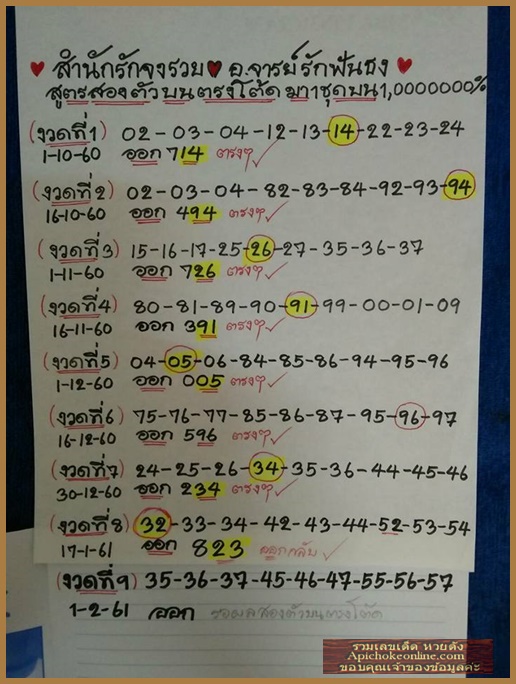 ♥ สำนักรักจงรวย ♥ อ.จารย์รักฟันธง ♥
สูตรสองตัวบนตรงโต๊ด มา1ชุดบน1,0000000%
(งวดที่1) 02-03-04-12-13-14-22-23-24
1-10-60 ออก 714 ตรงๆ ✓
(งวดที่2) 02-03-04-82-83-84-92-93-94
16-10-60 ออก 494 ตรงๆ ✓
(งวดที่3) 15-16-17-25-26-27-35-36-37
1-11-60 ออก 726 ตรงๆ ✓
(งวดที่4) 80-81-89-90-91-99-00-01-09
16-11-60 ออก 391 ตรงๆ ✓
(งวดที่5) 04-05-06-84-85-86-94-95-96
1-12-60 ออก 005 ตรงๆ ✓
(งวดที่6) 75-76-77-85-86-87-95-96-97
16-12-60 ออก 596 ตรงๆ ✓
(งวดที่7) 24-25-26-34-35-36-44-45-46
30-12-60 ออก 234 ตรงๆ ✓
(งวดที่8) 32-33-34-42-43-44-52-53-54
17-1-61 ออก 823 ออกกลับ ✓
(งวดที่9) 35-36-37-45-46-47-55-56-57
1-2-61 ออก รอผลสองตัวบนตรงโต๊ด
รวมเลขเด็ด หวยดัง
Apichokeonline.com
ขอบคุณเจ้าของข้อมูลค่ะ